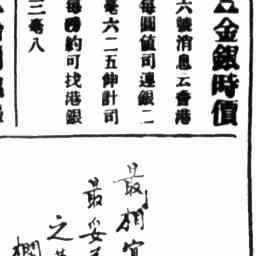 金銀時價
六號消息云香港
每圓値司連銀二
毫六二五伸計司
每磅約可找港銀
三毫八
最相宜
最妥
之